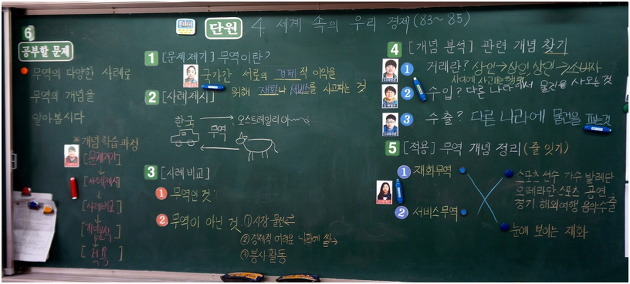 단원 4. 세계 속의 우리 경제 (83~85)
6
공부할 문제
무역의 다양한 사례로
무역의 개념을
알아봅시다
※개념 학습 과정
[문제제기]
↓
[사례제시]
↓
[사례비교]
↓
↓
[적용]
1 [문제제기] 무역이란?
국가간 서로의 경제적 이익을
위해 재화나 서비스를 사고파는 것
2 [사례제시]
한국 오스트레일리아
무역
3 [사례비교]
1 무역인 것:
2 무역이 아닌 것 ① 시장
② 경제적 어려운
③ 봉사 활동
4 [개념 분석] 관련 개념 찾기
1 거래란? 상인→상인, 상인→소비자
2 수입? 다른 나라에서 물건을 사오는 것
3 수출? 다른 나라에 물건을 파는 것
5 [적용] 무역 개념 정리 (줄 잇기)
1 재화무역
2 서비스무역
스포츠 선수 가수 발레단
오페라단 스포츠 공연
경기 해외여행 음악수출
눈에 보이는 재화